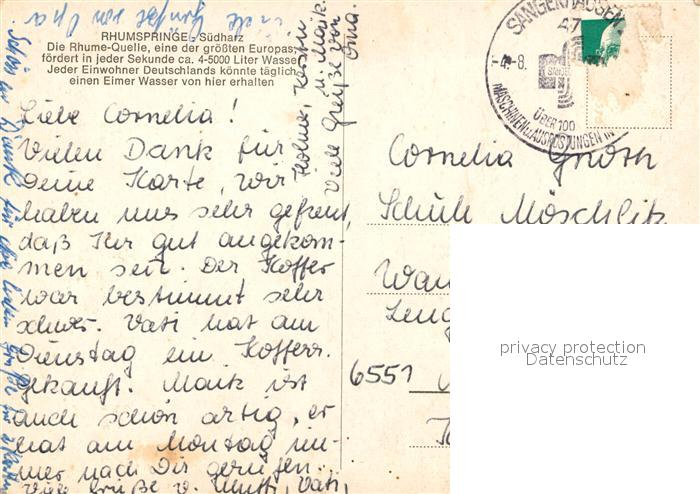 RHUMSPRINGE - Südharz
Die Rhume-Quelle, eine der größten Europas,
fördert in jeder Sekunde ca. 4-5000 Liter Wasser
Jeder Einwohner Deutschlands könnte täglich
einen Eimer Wasser von hier erhalten
Liebe Cornelia!
Vielen Dank für
Deine Karte, wir
haben uns sehr gefreut,
daß Ihr gut angekom-
men seit. Der Koffer
war bestimmt sehr
schwer. Vati hat am
Dienstag ein Kofferr.
gekauft. Maik ist
auch schon artig, er
hat am Montag im-
mer nach Dir gerufen.
Viele Grüße v. Mutti, Vati,
u. Maik.
Viele Grüße von
Oma.
Grüße von Opa
SANGERHAUSEN
47
-4.-8.
ÜBER 100
MASCHINEN u. AUSRÜSTUNGEN
Cornelia
Schule Möschlitz
6551
privacy protection
Datenschutz